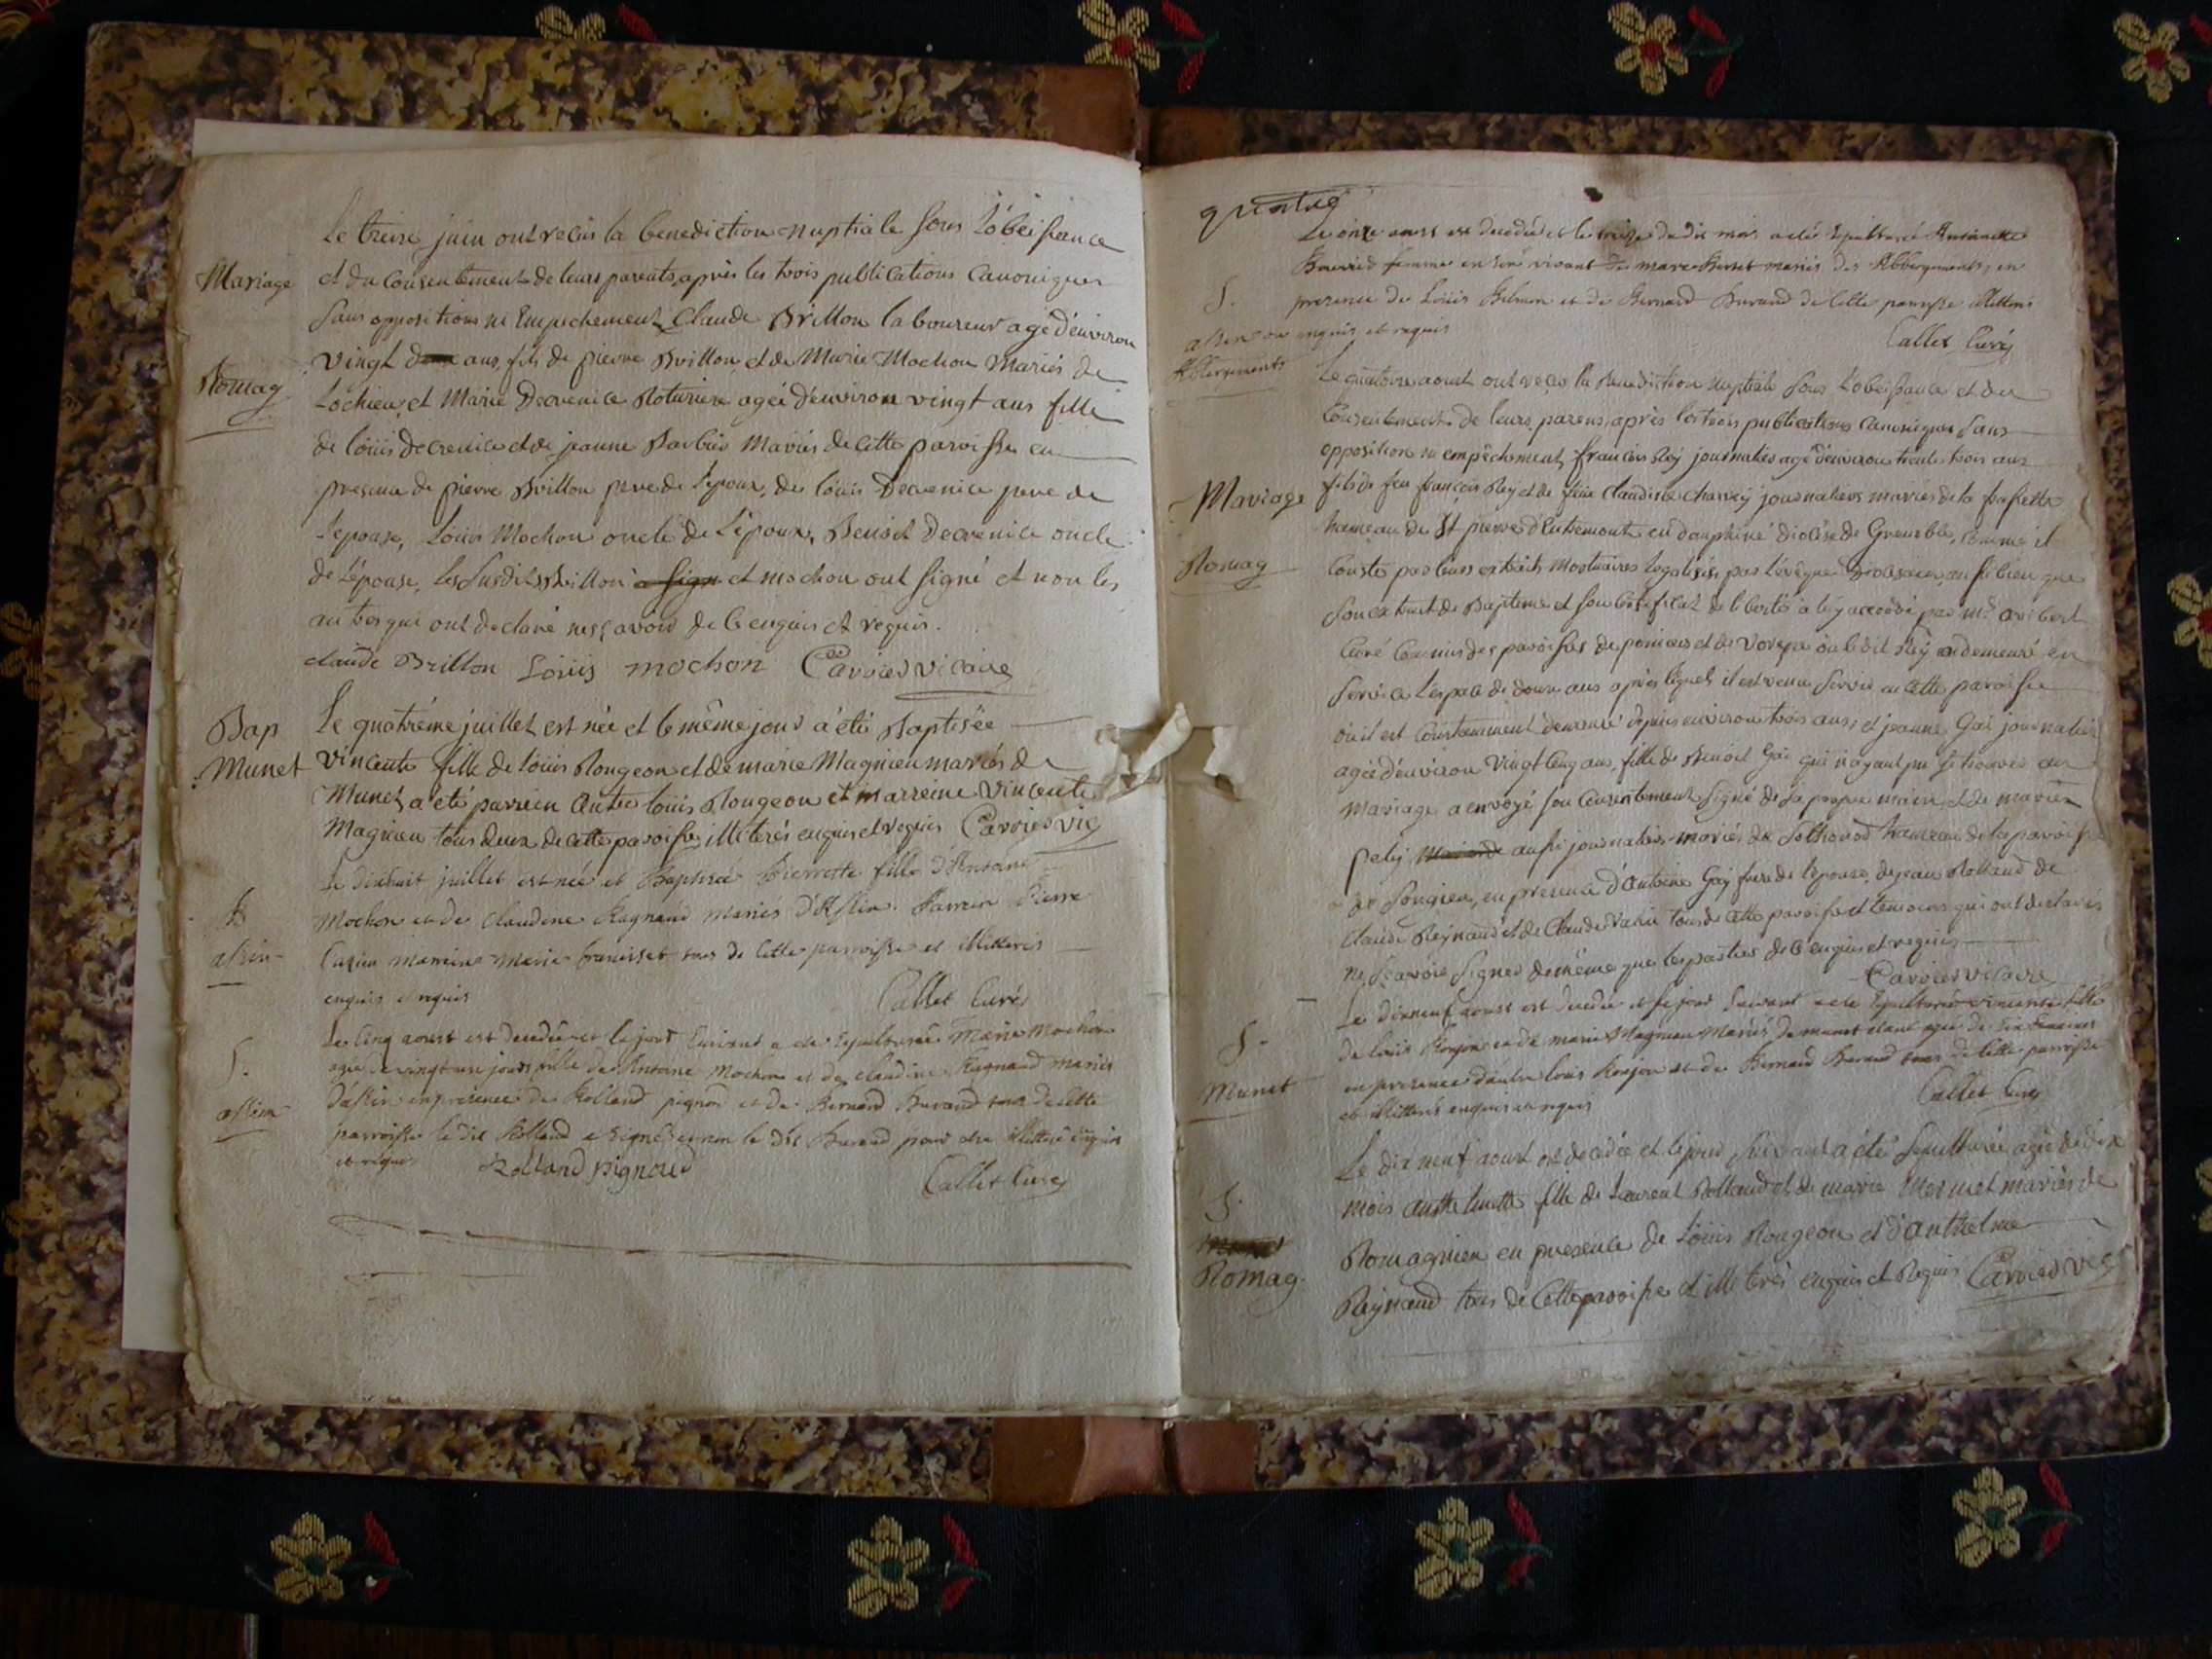 Le treise juin ont reçus la benediction nuptiale sous l'obeissance
Mariage
et du consentement de leurs parents, après les trois publications canoniques
sans oppositions ni Empechement, Claude Brillon laboureur agé d'environ
Romag
vingt ans, fils de pierre Brillon, et de Marie Mochon Mariés de
Lochieu, et Marie Decrenice Roturiere agée d'environ vingt ans fille
de loüis decrenice et de jeanne Barbier Mariés de cette paroisse en
presence de pierre Brillon pere de l'epoux, de loüis Decrenice pere de
l'epouse, Loüis Mochon oncle de L'époux, Benoit Decrenice oncle
de L'épouse, les susdits Brillon a signé et mochon ont signé et non les
autres qui ont declaré ne sçavoir de ce enquis et requis.
claude Brillon Loüis mochon Carrier vicaire
Bap
Le quatrème juillet est née et le même jour a été Baptisée
Munet
Vincente fille de loüis Rongeon et de marie Magnieu mariés de
Munet, a été parrein autre loüis Rongeon et marreine Vincente
Magnieu tous deux de cette paroisse illiterés enquis et requis Carrier vic
Le dixhuit juillet est née et Baptisée Pierrette fille d'Antoine
B
Mochon et de Claudine Raynaud mariés d'Assin. Parrein Pierre
assin
marreine Marie tous de cette parroisse et illitterés
enquis et requis Callet Curé
Le cinq aoust est decedée et le jour suivant a été sepulturée Marie Mochon
S.
agée de vingt un jours fille de Antoine Mochon et de claudine Raynaud mariés
assin
d'assin en presence de Rolland pignod et de Bernard Burand tous de cette
parroisse le dit Rolland a signé et non le dit Burand pour etre illitteré enquis
et requis Rolland pignoud Callet Curé
Le onze aoust est decedée et le treize du dit mois a été sepulturée Antoinette
femme en son vivant de marc mariés des Abbergements, en
S.
presence de Loüis et de Bernard Burand de cette parroisse illitterés
enquis et requis
Callet Curé
Abbergements
Le quatorze aoust ont reçus la Benediction nuptiale sous l'obeissance et du
consentement de leurs parens, après les trois publications canoniques sans
opposition ni empêchement, françois Rey journalier agé d'environ trente trois ans
Mariage
fils de feu françois Rey et de feüe Claudine charvey journaliers mariés de la
hameau de St pierre d'Entremont en dauphiné diocèse de Grenoble, comme il
Romag
conste par leurs extraits mortuaires legalisés par l'évêque aussi bien que
son extrait de Bapteme et son certificat de liberté a luy accordé par mr
curé commis des paroisses de pomiers et de Voreppe où le dit Rey a demeuré en
service l'espace de douze ans après lequel il est venu servir en cette paroisse
où il est constamment demeuré depuis environ trois ans; et jeanne Gai journaliere
agée d'environ vingt cinq ans, fille de Benoit Gai qui n'ayant pu se trouver au
mariage a envoyé son consentement signé de sa propre main, et de marie
pely aussi journaliers mariés de hameau de la paroisse
de Songieu, en presence d'Antoine Gay frere de l'epouse, de jean Rolland de
Claude Reynaud et de Claude tous de cette paroisse et temoins qui ont declarés
ne sçavoir signer de même que les parties de ce enquis et requis
Carrier vicaire
Le dixneuf aoust est decedée et le jour suivant a été sepulturée vincente fille
S.
de loüis Rongeon et de marie Magnieu Mariés de munet etant agée de six semaines
Munet
en presence d'autre louis Ronjon et de Bernard Burand tous de cette parroisse
et illitterés enquis et requis
Callet Curé
Le dix neuf aoust est decedée et le jour suivant a été sepulturée agée de dix
S.
mois anthelmette fille de Laurent Rolland et de marie Mermet mariés de
Romag.
Romagnieu en presence de Loüis Rongeon et d'anthelme
Reynaud tous de cette paroisse et illiterés enquis et Requis Carrier vic